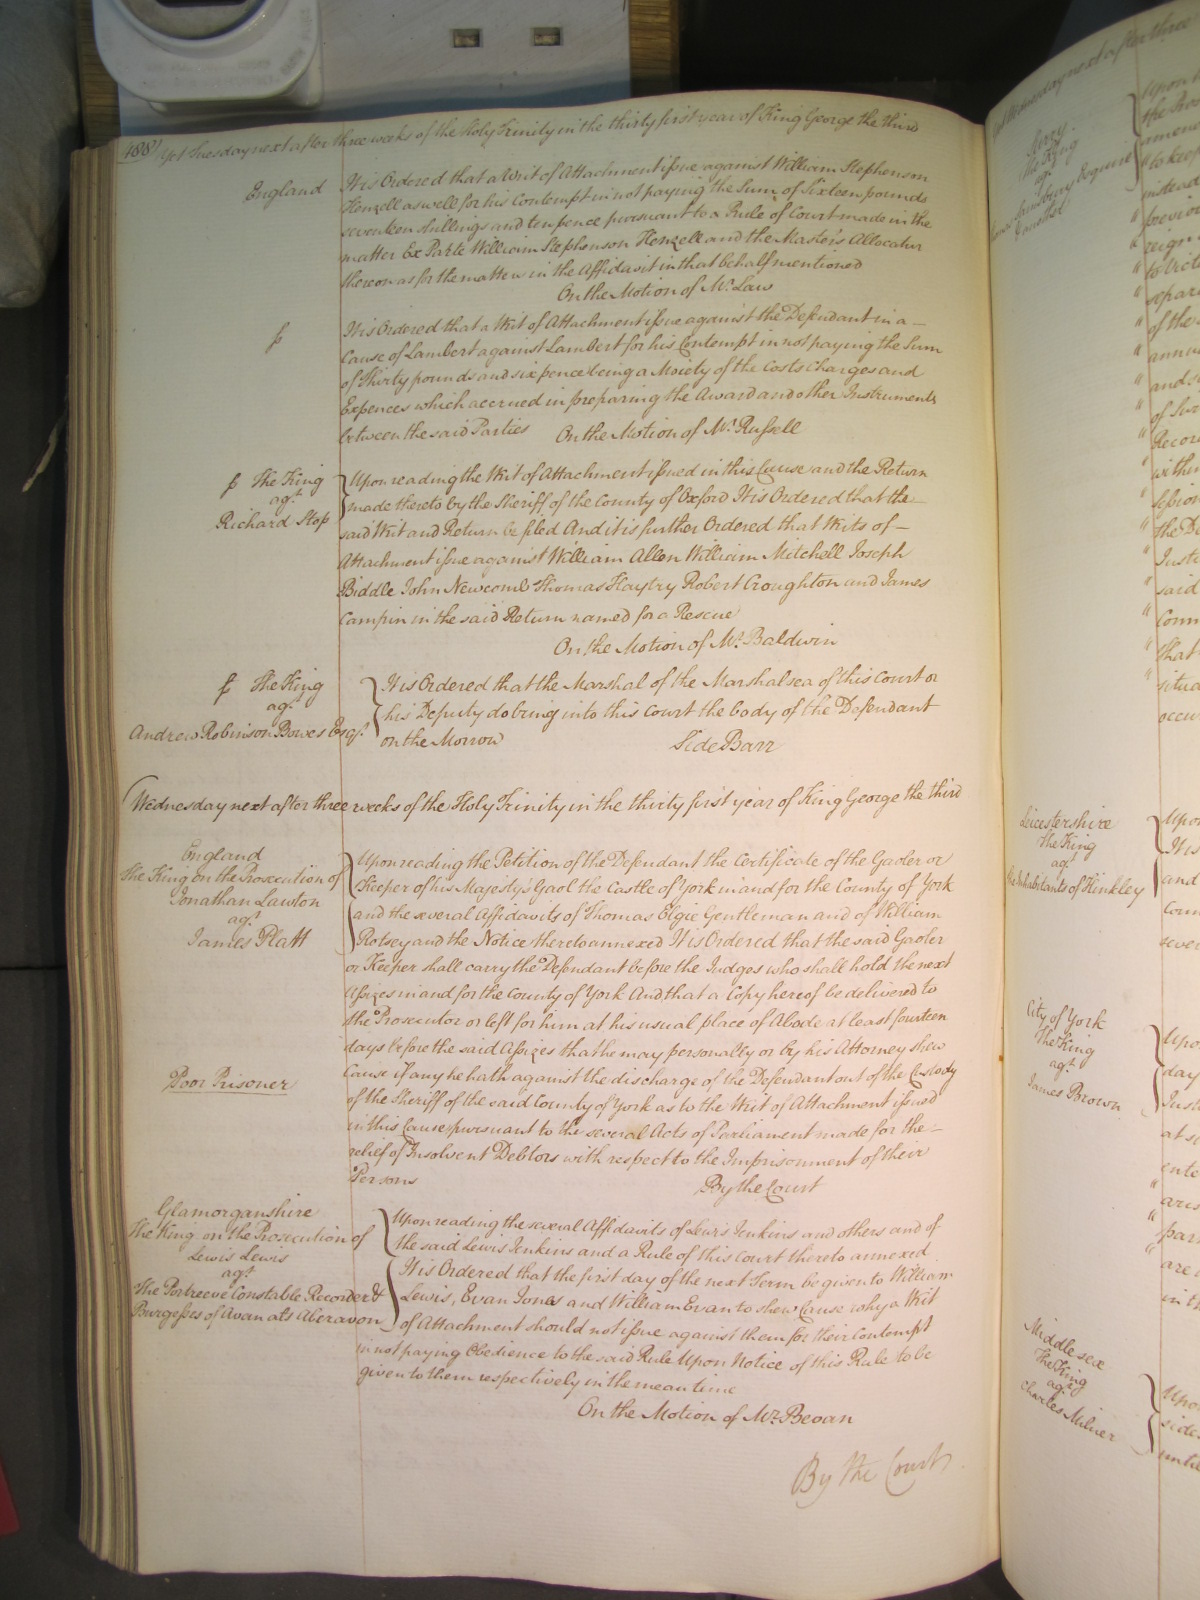 188 Yet Tuesday next after three weeks of the Holy Trinity in the thirty first year of King George the third
England
It is Ordered that a Writ of Attachment issue against William Stephenson
Henzell aswell for his Contempt in not paying the Sum of Sixteen pounds
seventeen shillings and ten pence pursuant to a Rule of Court made in the
matter Ex Parte William Stephenson Henzell and the Masters Allocatur
thereon as for the matters in the Affidavit in that behalf mentioned
On the Motion of Mr. Law
It is Ordered that a Writ of Attachment issue against the Defendant in a
Cause of Lambert against Lambert for his Contempt in not paying the Sum
of Thirty pounds and six pence being a Moiety of the Costs Charges and
Expences which accrued in preparing the Award and other Instruments
between the said Parties On the Motion of Mr. Russell
The King
agt.
Richard Stop
Upon reading the Writ of Attachment issued in this Cause and the Return
made thereto by the Sheriff of the County of Oxford It is Ordered that the
said Writ and Return be filed And it is further Ordered that Writs of
Attachment issue against William Allen William Mitchell Joseph
Biddle John Newcomb Thomas Haytry Robert Croughton and James
Campin in the said Return named for a Rescue
On the Motion of Mr. Baldwin
The King
agt.
Andrew Robinson Bowes Esqr.
It is Ordered that the Marshal of the Marshalsea of this Court or
his Deputy do bring into this Court the body of the Defendant
on the Morrow Side Barr
Wednesday next after three weeks of the Holy Trinity in the thirty first year of King George the third
England
The King on the Prosecution of
Jonathan Lawton
agt.
James Platt
Upon reading the Petition of the Defendant the Certificate of the Gaoler or
Keeper of his Majesty's Gaol the Castle of York in and for the County of York
and the several Affidavits of Thomas Elgie Gentleman and of William
Rotsey and the Notice thereto annexed It is Ordered that the said Gaoler
or Keeper shall carry the Defendant before the Judges who shall hold the next
Assizes in and for the County of York And that a Copy hereof be delivered to
the Prosecutor or left for him at his usual place of Abode at least fourteen
days before the said Assizes that he may personally or by his Attorney shew
Poor Prisoner
Cause if any he hath against the discharge of the Defendant out of the Custody
of the Sheriff of the said County of York as to the Writ of Attachment issued
in this Cause pursuant to the several Acts of Parliament made for the
relief of Insolvent Debtors with respect to the Imprisonment of their
Persons By the Court
Glamorganshire
The King on the Prosecution of
Lewis Lewis
agt.
The Portreeve Constable Recorder &
Burgesses of Avan als Aberavon
Upon reading the several Affidavits of Lewis Jenkins and others and of
the said Lewis Jenkins and a Rule of this Court thereto annexed
It is Ordered that the first day of the next Term be given to William
Lewis, Evan Jones and William Evan to shew Cause why a Writ
of Attachment should not issue against them for their Contempt
in not paying Obedience to the said Rule Upon Notice of this Rule to be
given to them respectively in the mean time
On the Motion of Mr. Bevan
By the Court
Surry
The King
agt.
Leicestershire
the King
agt.
the Inhabitants of Hinkley
City of York
The King
agt.
James Brown
Middlesex
The King
agt.
Charles Milner